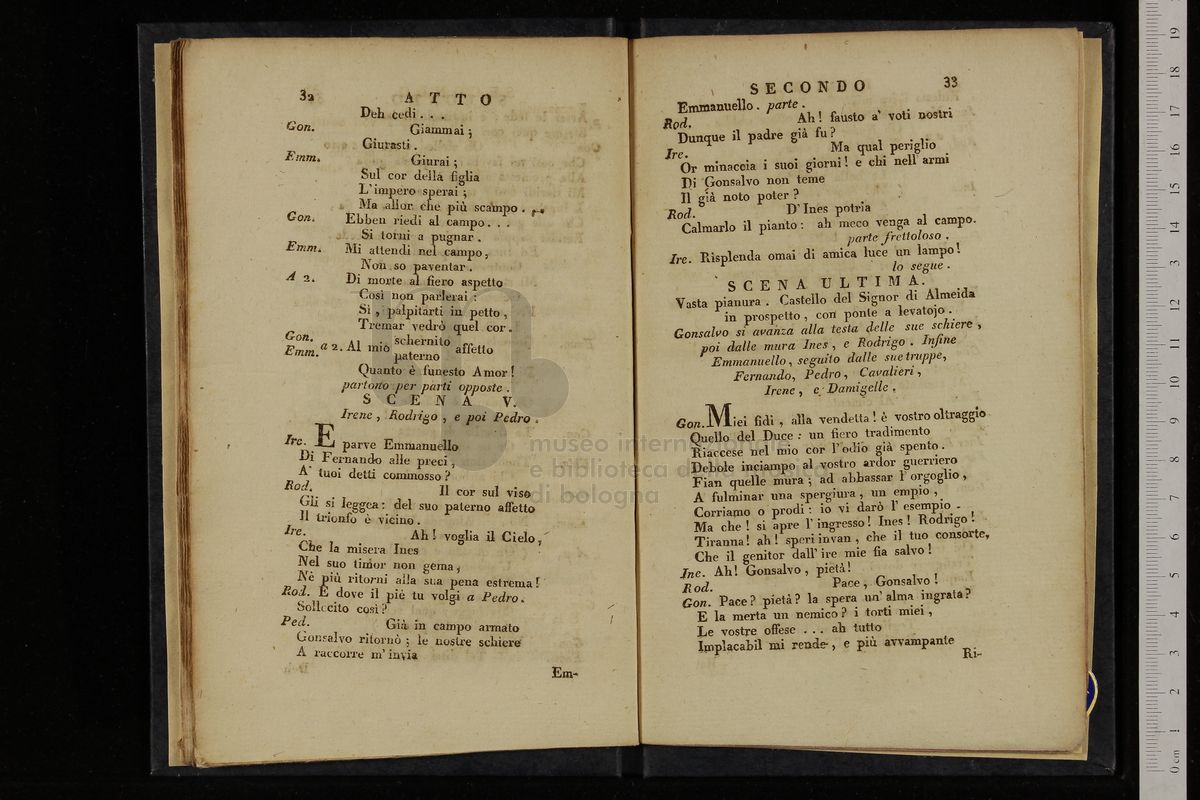 32
ATTO
Deh cedi . . .
Gon. Giammai ;
Giurasti .
Emm. Giurai ;
Sul cor della figlia
L'impero sperai ;
Ma allor che più scampo . . .
Gon. Ebben riedi al campo . . .
Si torni a pugnar .
Emm. Mi attendi nel campo ,
Non so paventar .
A 2. Di morte al fiero aspetto
Così non parlerai :
Sì , palpitarti in petto ,
Tremar vedrò quel cor .
Gon. schernito
Emm. a 2. Al mio affetto
paterno
Quanto è funesto Amor !
partono per parti opposte .
SCENA V.
Irene , Rodrigo , e poi Pedro .
Ire. E parve Emmanuello
Di Fernando alle preci ,
A' tuoi detti commosso ?
Rod. Il cor sul viso
Gli si leggea : del suo paterno affetto
Il trionfo è vicino .
Ire. Ah ! voglia il Cielo ,
Che la misera Ines
Nel suo timor non gema ,
Nè più ritorni alla sua pena estrema !
Rod. E dove il piè tu volgi a Pedro .
Sollecito così ?
Ped. Già in campo armato
Gonsalvo ritornò ; le nostre schiere
A raccorre m'invia
Em-
SECONDO
33
Emmanuello . parte .
Rod. Ah ! fausto a' voti nostri
Dunque il padre già fu ?
Ire. Ma qual periglio
Or minaccia i suoi giorni ! e chi nell'armi
Di Gonsalvo non teme
Il già noto poter ?
Rod. D'Ines potria
Calmarlo il pianto : ah meco venga al campo .
parte frettoloso .
Ire. Risplenda omai di amica luce un lampo !
lo segue .
SCENA ULTIMA.
Vasta pianura . Castello del Signor di Almeida
in prospetto , con ponte a levatojo .
Gonsalvo si avanza alla testa delle sue schiere ,
poi dalle mura Ines , e Rodrigo . Infine
Emmanuello , seguito dalle sue truppe,
Fernando, Pedro , Cavalieri ,
Irene , e Damigelle .
Gon. Miei fidi , alla vendetta ! è vostro oltraggio
Quello del Duce : un fiero tradimento
Riaccese nel mio cor l'odio già spento .
Debole inciampo al vostro ardor guerriero
Fian quelle mura ; ad abbassar l'orgoglio ,
A fulminar una spergiura , un empio ,
Corriamo o prodi : io vi darò l'esempio .
Ma che ! si apre l'ingresso ! Ines ! Rodrigo !
Tiranna ! ah ! speri invan , che il tuo consorte,
Che il genitor dall'ire mie fia salvo !
Ine. Ah! Gonsalvo , pietà !
Rod. Pace , Gonsalvo !
Gon. Pace ? pietà ? la spera un'alma ingrata ?
E la merta un nemico ? i torti miei ,
Le vostre offese . . . ah tutto
Implacabil mi rende , e più avvampante
Ri-
museo internazionale
e biblioteca della musica
di bologna
0 cm 1 2 3 4 5 6 7 8 9 10 11 12 13 14 15 16 17 18 19